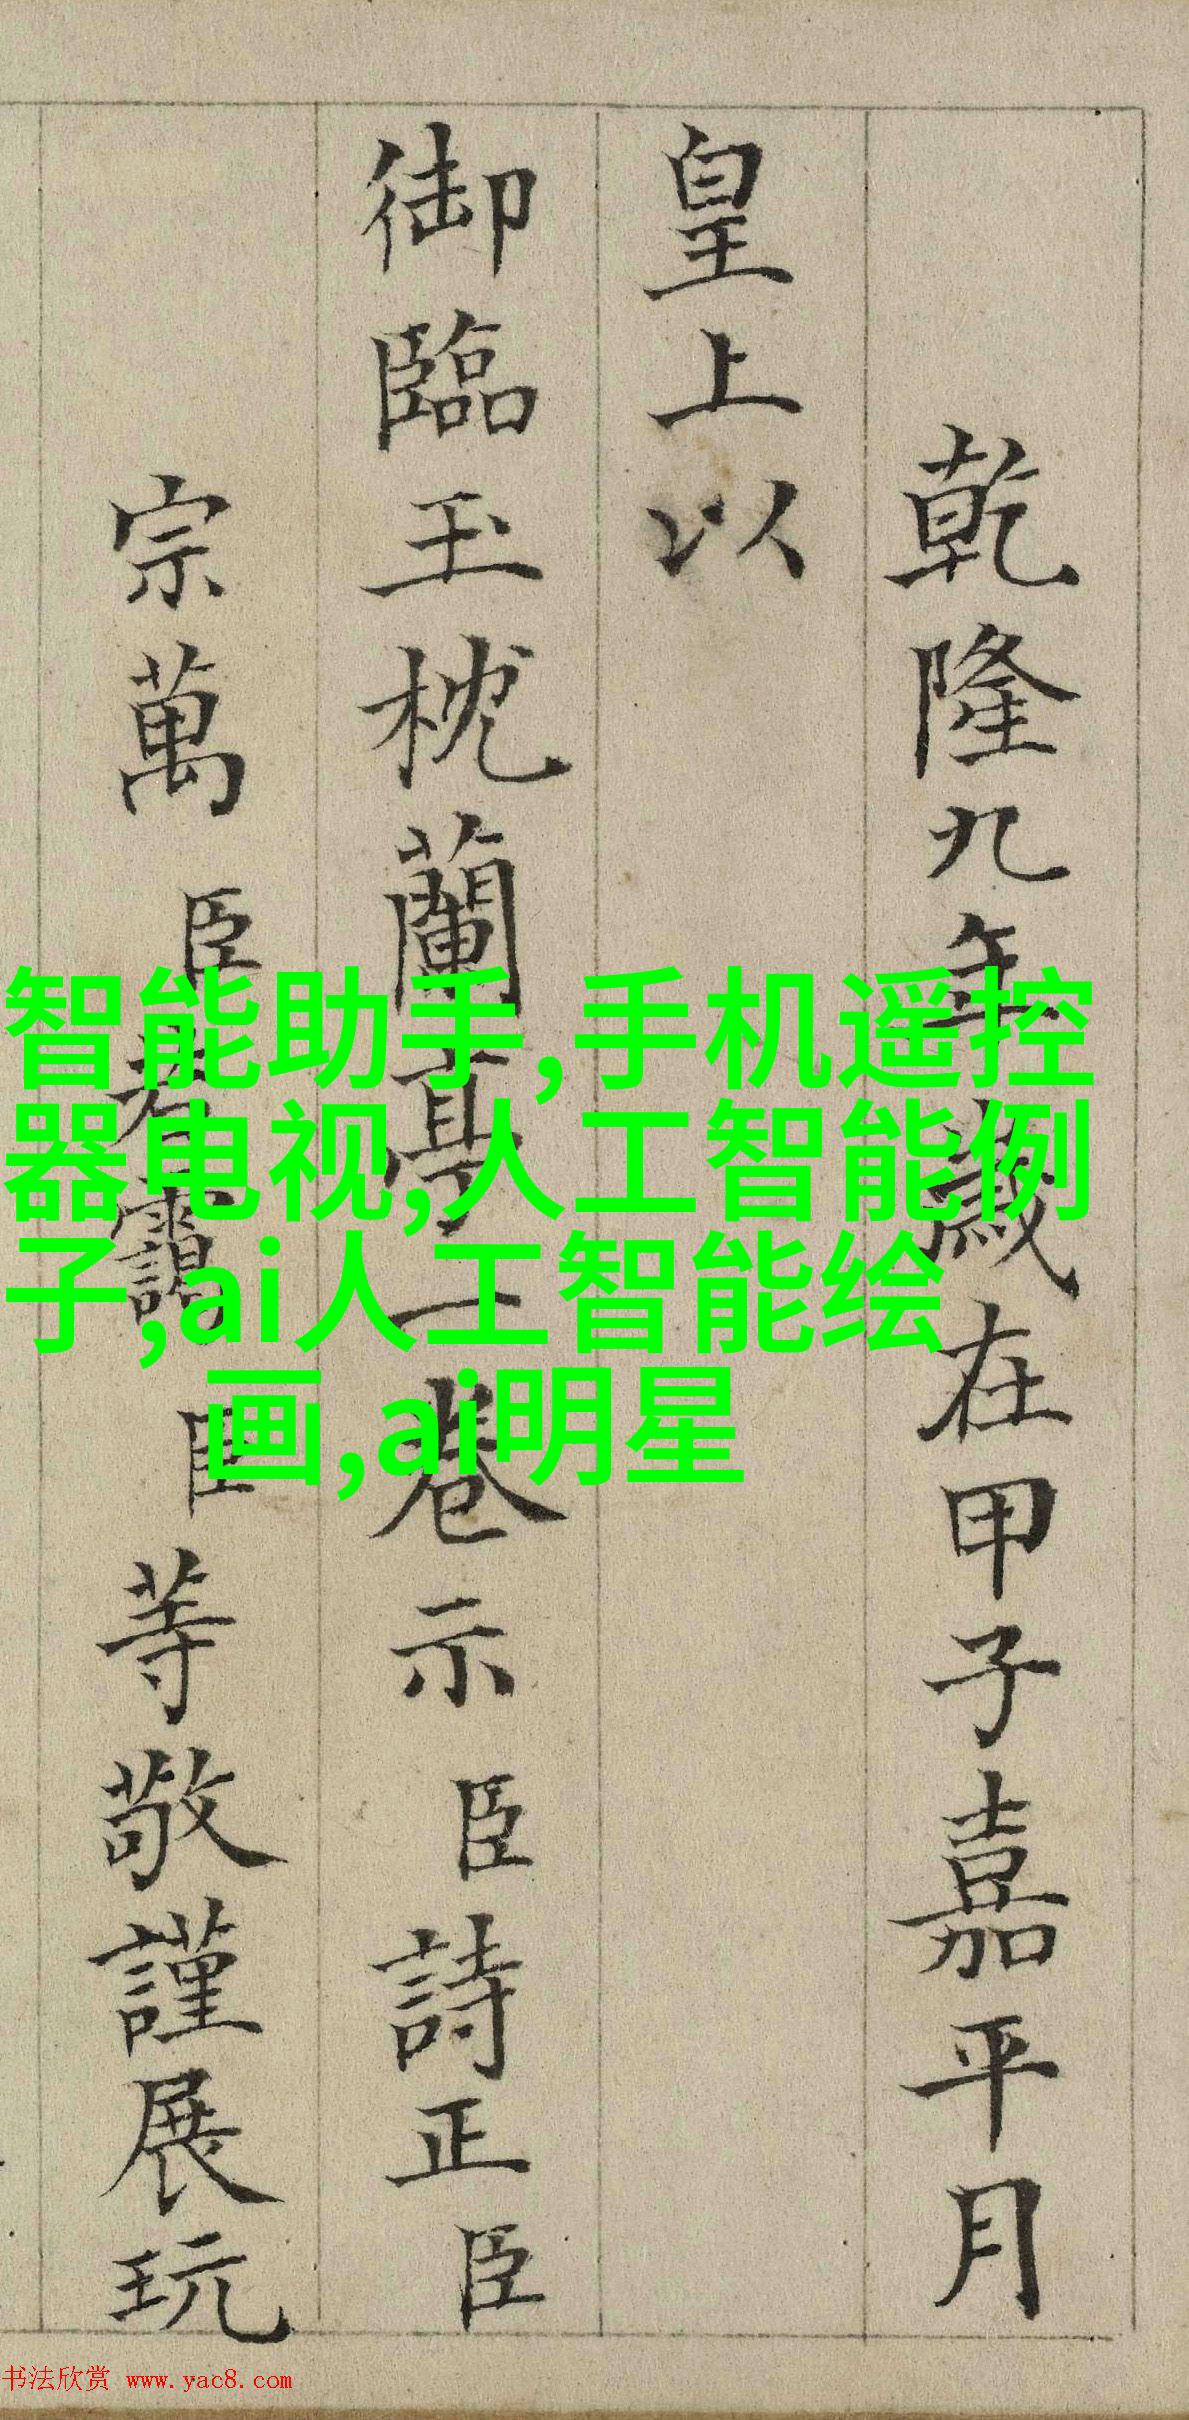 乾隆九年歲在甲子嘉平月
皇上以
御臨玉枕蘭亭一卷示臣詩正臣
宗萬臣若靄臣等敬謹展玩
智能助手,手机遥控
器电视,人工智能例
子,ai人工智能绘
画,ai明星
书法欣赏 www.yac8.com